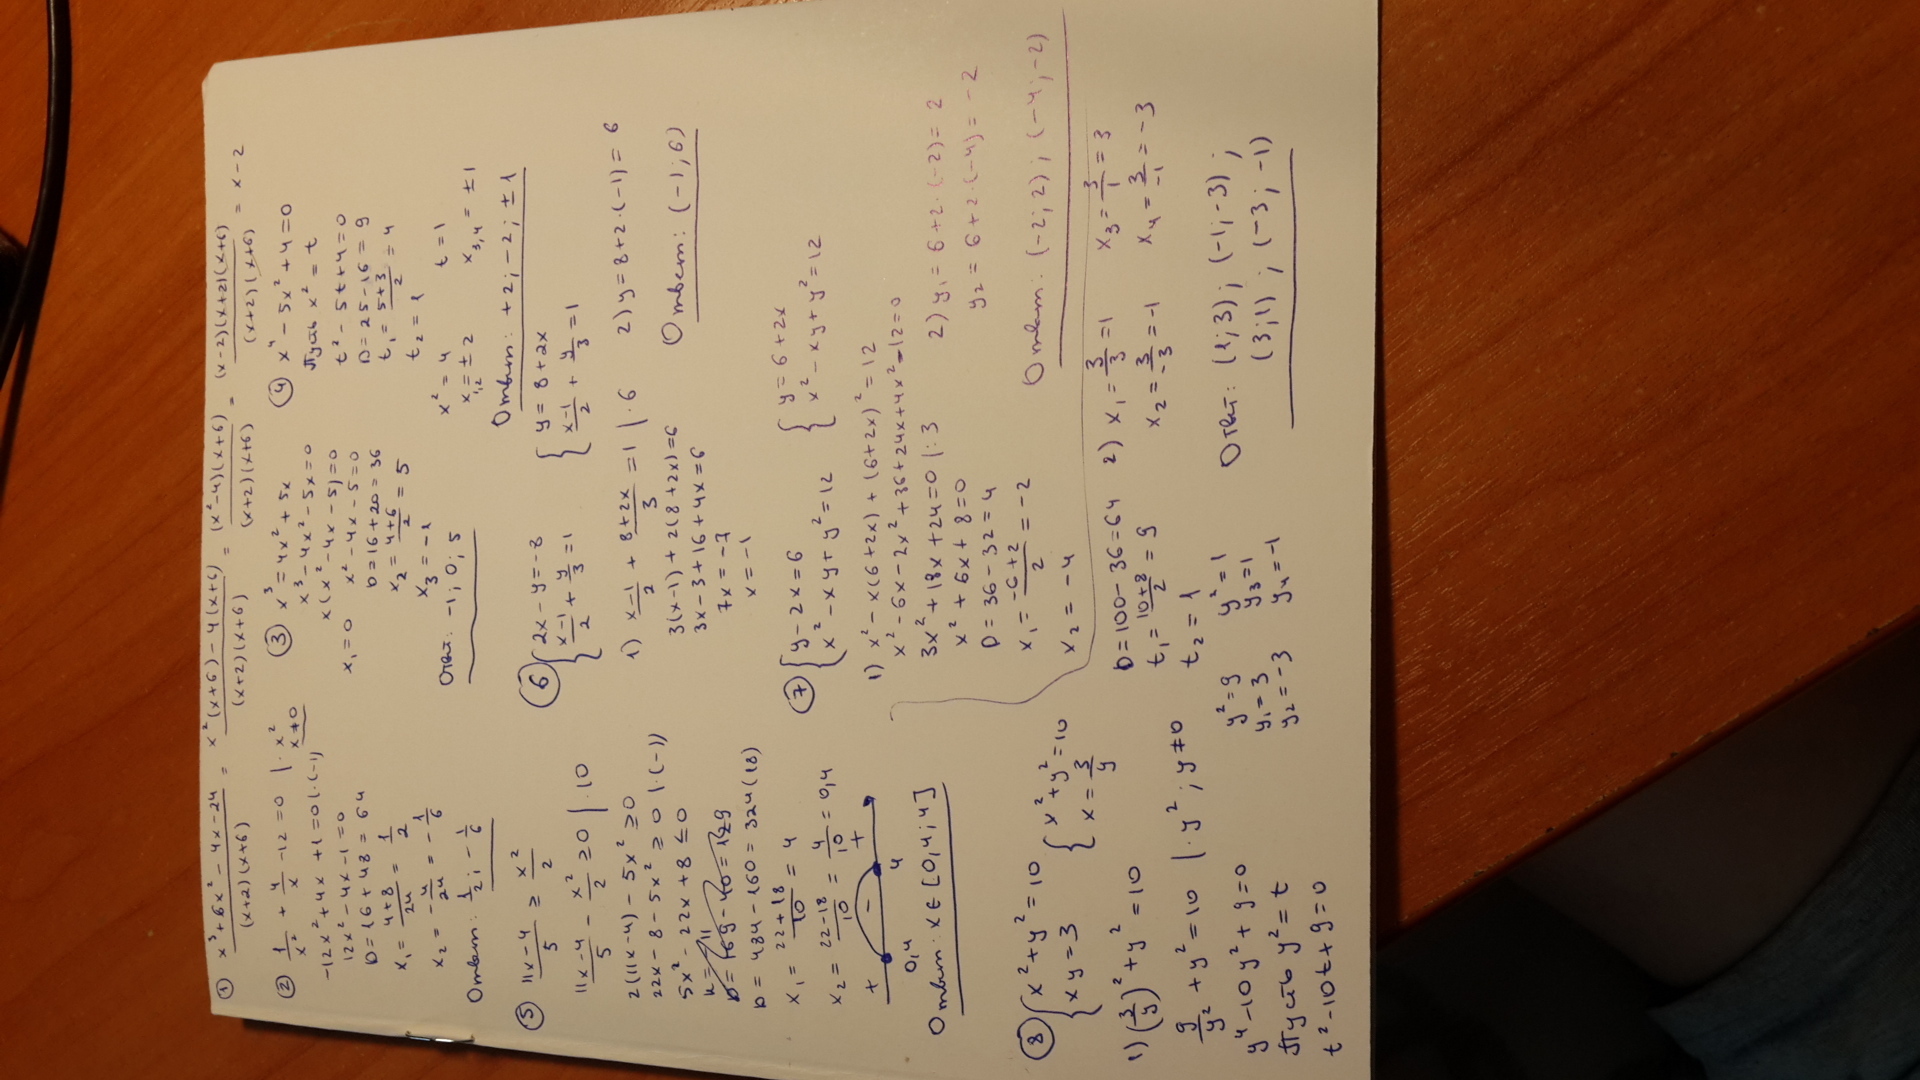 ① (x³+6x²-4x-24)/((x+2)(x+6)) = (x²(x+6)-4(x+6))/((x+2)(x+6)) = ((x²-4)(x+6))/((x+2)(x+6)) = ((x-2)(x+2)(x+6))/((x+2)(x+6)) = x-2
② 1/x² + 4/x -12=0 |·x²
x≠0
-12x²+4x+1=0 |·(-1)
12x²-4x-1=0
D=16+48=64
x₁= (4+8)/24 = 1/2
x₂= -4/24 = -1/6
Ответ: 1/2; -1/6
③ x³=4x²+5x
x³-4x²-5x=0
x(x²-4x-5)=0
x₁=0 x²-4x-5=0
D=16+20=36
x₂= (4+6)/2 =5
x₃=-1
Ответ: -1; 0; 5
④ x⁴-5x²+4=0
Пусть x²=t
t²-5t+4=0
D=25-16=9
t₁= (5+3)/2 =4
t₂=1
x²=4 t=1
x₁,₂=±2 x₃,₄=±1
Ответ: +2; -2; ±1
⑤ (11x-4)/5 ≥ x²/2
(11x-4)/5 - x²/2 ≥0 |·10
2(11x-4)-5x²≥0
22x-8-5x²≥0 |·(-1)
5x²-22x+8≤0
D=484-160=324(18)
x₁= (22+18)/10 =4
x₂= (22-18)/10 = 4/10 =0,4
+ - +
0,4 4
Ответ: x∈[0,4;4]
⑥ { 2x-y=-8 { y=8+2x
(x-1)/2 + y/3 =1 (x-1)/2 + y/3 =1
1) (x-1)/2 + (8+2x)/3 =1 |·6 2) y=8+2·(-1)=6
3(x-1)+2(8+2x)=6
3x-3+16+4x=6
7x=-7
x=-1
Ответ: (-1;6)
⑦ { y-2x=6 { y=6+2x
x²-xy+y²=12 x²-xy+y²=12
1) x²-x(6+2x)+(6+2x)²=12
x²-6x-2x²+36+24x+4x²-12=0
3x²+18x+24=0 |:3 2) y₁=6+2·(-2)=2
x²+6x+8=0 y₂=6+2·(-4)=-2
D=36-32=4
x₁= (-6+2)/2 =-2
x₂=-4
Ответ: (-2;2); (-4;-2)
⑧ { x²+y²=10 { x²+y²=10
xy=3 x= 3/y
1) (3/y)²+y²=10
9/y² +y²=10 |·y²; y≠0
y⁴-10y²+9=0
Пусть y²=t
t²-10t+9=0
D=100-36=64
t₁= (10+8)/2 =9
t₂=1
y²=9 y²=1
y₁=3 y₃=1
y₂=-3 y₄=-1
2) x₁= 3/3 =1 x₃= 3/1 =3
x₂= 3/-3 =-1 x₄= 3/-1 =-3
Ответ: (1;3); (-1;-3);
(3;1); (-3;-1)